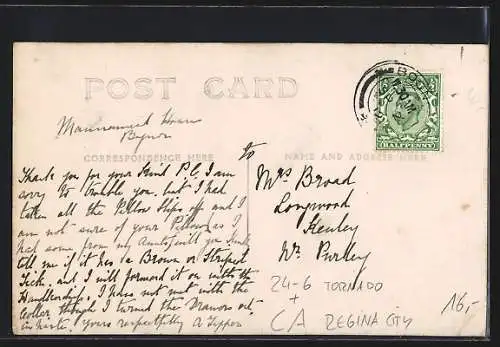 POST CARD
BOGN
HALFPENNY
Bognor
CORRESPONDENCE HERE
NAME AND ADDRESS HERE
to
Thank you for your Kind P.C. I am
sorry to trouble you, but I had
taken all the Pillow slips off and I
am not sure of your Pillow as I
had some from my Aunts will you
tell me if it has a Brown or Striped
Tick. and I will forward it on with the
Handkerchief, I have not met with the
Collar though I turned the Drawers out,
in haste, yours respectfully A Tippen
Mrs Broad
Longwood
Kenley
Nr. Purley
24-6 TORNADO
+
CA REGINA CITY
16,-